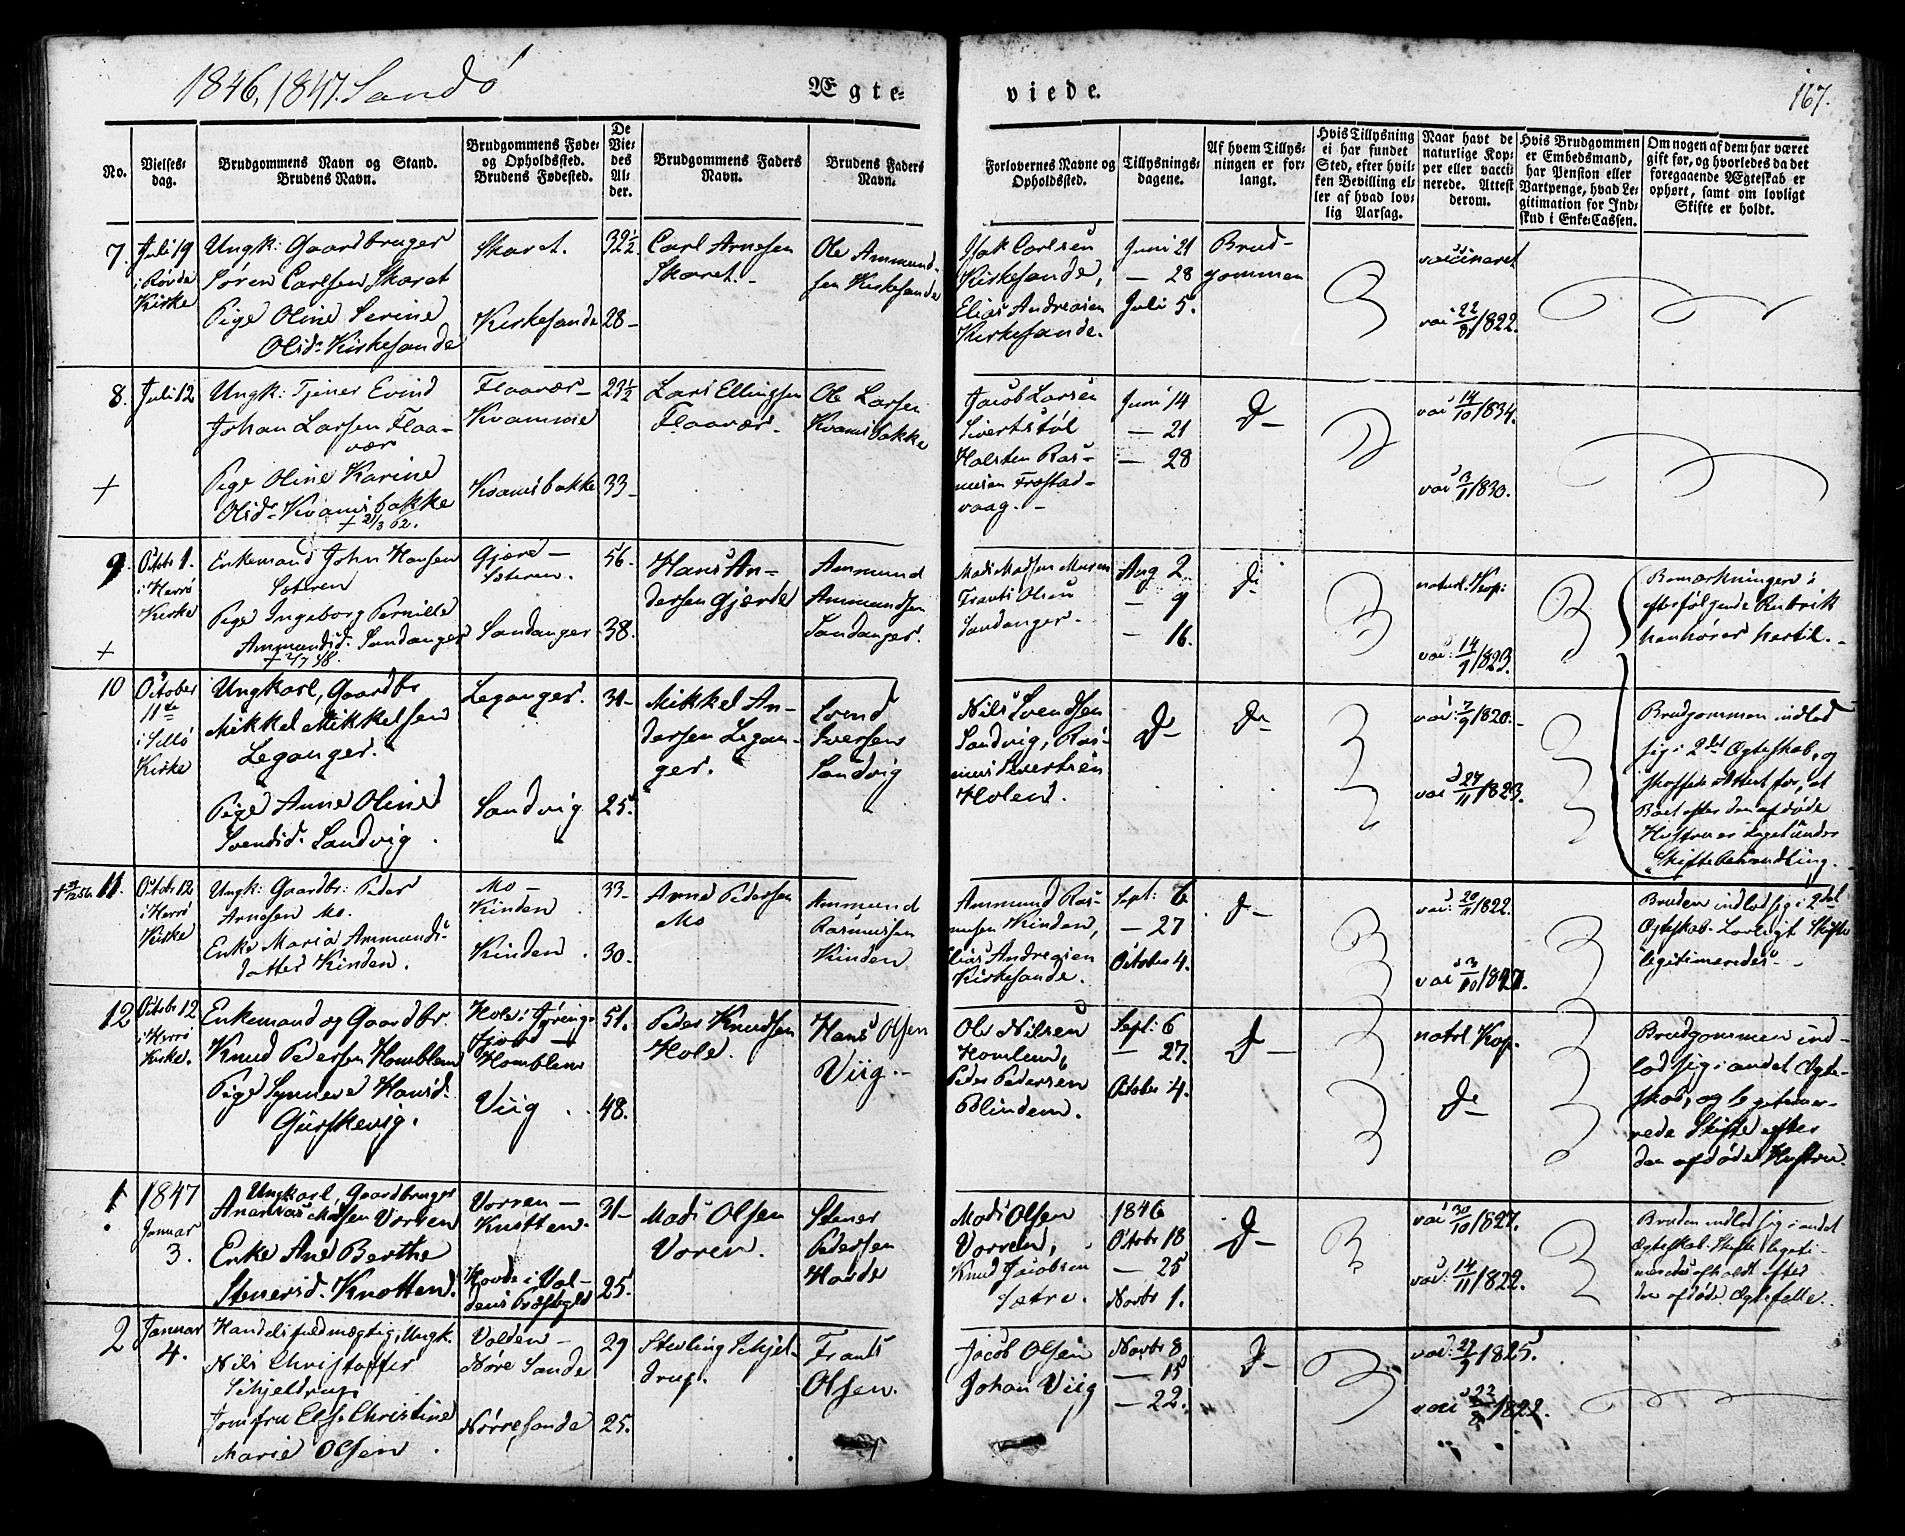 1846, 1847. Sandø
Ægte-
viede.
167.
No.
Vielses-
dag.
Brudgommens Navn og Stand.
Brudens Navn.
Brudgommens Føde-
og Opholdssted.
Brudens Fødested.
De
Vie-
des
Al-
der.
Brudgommens Faders
Navn.
Brudens Faders
Navn.
Forlovernes Navne og
Opholdssted.
Tillysnings-
dagene.
Af hvem Tillys-
ningen er for-
langt.
Hvis Tillysning
ei har fundet
Sted, efter hvil-
ken Bevilling el-
ler af hvad lov-
lig Aarsag.
Naar havt de
naturlige Kop-
per eller vacci-
nerede. Attest
derom.
Hvis Brudgommen
er Embedsmand,
har Pension eller
Vartpenge, hvad Le-
gitimation for Ind-
skud i Enke-Cassen.
Om nogen af dem har været
gift før, og hvorledes da det
foregaaende Ægteskab er
ophørt, samt om lovligt
Skifte er holdt.
7.
Juli 19
i Røvde
Kirke
Ungk: Gaardbruger
Søren Carlsen Skaret
Pige Oline Serine
Olsd. Kirkesande
Skaret.
Kirkesande
32½
28-
Carl Arnesen
Skaret.-
Ole Ammund-
sen Kirkesande
Isak Carlsen
Kirkesande,
Elias Andreasen
Kirkesande.
Juni 21
- 28
Juli 5.
Brud-
gommen
vaccineret
vac 22/8 1822.
8.
Juli 12
+
Ungk: Tjener Evind
Johan Larsen Flaa-
vær
Pige Oline Karine
Olsd. Kvamsbakke
+ 21/3 62.
Flaavær-
Kvamme
Kvamsbakke
23½
33-
Lars Ellingsen
Flaavær.
Ole Larsen
Kvamsbakke
Jacob Larsen
Sivertstøl
Holsten Ras-
musen Frøstad-
vaag.-
Juni 14
- 21
- 28
D-
vac 14/10 1834.
vac 3/11 1830.
9.
Octobr 1.
i Herrø
Kirke
+
Enkemand John Hansen
Sæteren
Pige Ingeborg Pernille
Ammundsd. Sandanger
Gjærd-
Sæteren.
Sandanger
56.
38.
Hans An-
dersen Gjærde
Ammund
Ammundsen
Sandanger.
Mads Madsen
Frants Olsen
Sandanger.
Aug 2
- 9
- 16.
D-
naturl. Kop:
vac: 14/9 1823.
Bemærkningen i
efterfølgende Rubrik
henhører hertil.-
10
October
11te
i
Kirke
Ungkarl, Gaardbr
Mikkel Mikkelsen
Leganger.
Pige Anne Oline
Svendsd. Sandvig.
Leganger.
Sandvig
31-
25.
Mikkel An-
dersen Legan-
ger.
Svend
Iversen
Sandvig
Nils Svendsen
Sandvig, Ras-
mus Sivertsen
Holen.
D-
D-
vac 7/9 1820.-
vac 27/11 1823.
Brudgommen indlod
sig i 2det Ægteskab, og
skaffede Attest for, at
Boet efter den afdøde
Hustru er taget under
Skiftebehandling.-
11.
Octobr 12
i Herrø
Kirke
Ungk: Gaardbr: Peder
Arnesen Mo.
Enke Maria Ammunds-
datter Kinden.
Mo-
Kinden
Kinden
33-
30-
Arne Pedersen
Mo
Ammund
Rasmussen
Kinden
Ammund Ras-
musen Kinden,
Elias Andreasen
Kirkesande.
Sept: 6
- 27
October 4.
D-
vac: 20/11 1822.
Bruden indlod sig i 2det
Ægteskab. Lovligt Skifte
legitimeredes.-
12
Octobr 12
i Herrø
Kirke.
Enkemand og Gaardbr.
Knud Pedersen Homblem
Pige Synneve Hansd.
Gurskevig.
Hole i Jøring-
fjord-
Homblem
Viig
51.
48.
Peder Knudsen
Hole.
Hans Olsen
Viig.-
Ole Nilsen
Homlem,
Peder Pedersen
Blindem.
Sept: 6
- 27.
October 4.
D-
natrl. Kop.
D-
Brudgommen ind-
lod sig i andet Ægte-
skab, og legitime-
rede Skifte efter
den afdøde Hustru.
1
1847
Januar
3.
Ungkarl, Gaardbruger
Ananias Madsen Vorren
Enke Ane Berthe
Stenersd. Knotten.
Vorren-
Knotten.
Hovde i Vol-
dens Præstegjeld
31-
25.
Mads Olsen
Voren.
Stener
Pedersen
Hovde
Mads Olsen
Vorren,
Knud Jacobsen
Sætre.
1846
Octobr 18
- 25
Novbr 1.
D-
vac 30/10 1827.
vac: 14/11 1822.
Bruden indlod sig i andet
Ægteskab. Skifte legiti-
meredes afholdt efter
den afdøde Ægtefelle.
2
Januar
4.
Handelsfuldmægtig, Ungk.
Nils Christoffer
Schjeldrup
Jomfru Else Christine
Marie Olsen.
Volden-
Nøre Sande
Nørresande
29
25.
Schjel-
drup.
Frants
Olsen.
Jacob Olsen
Johan Viig
Novbr 8
- 15
- 22.
D-
vac. 27/9 1825.
vac 22/8 1822.